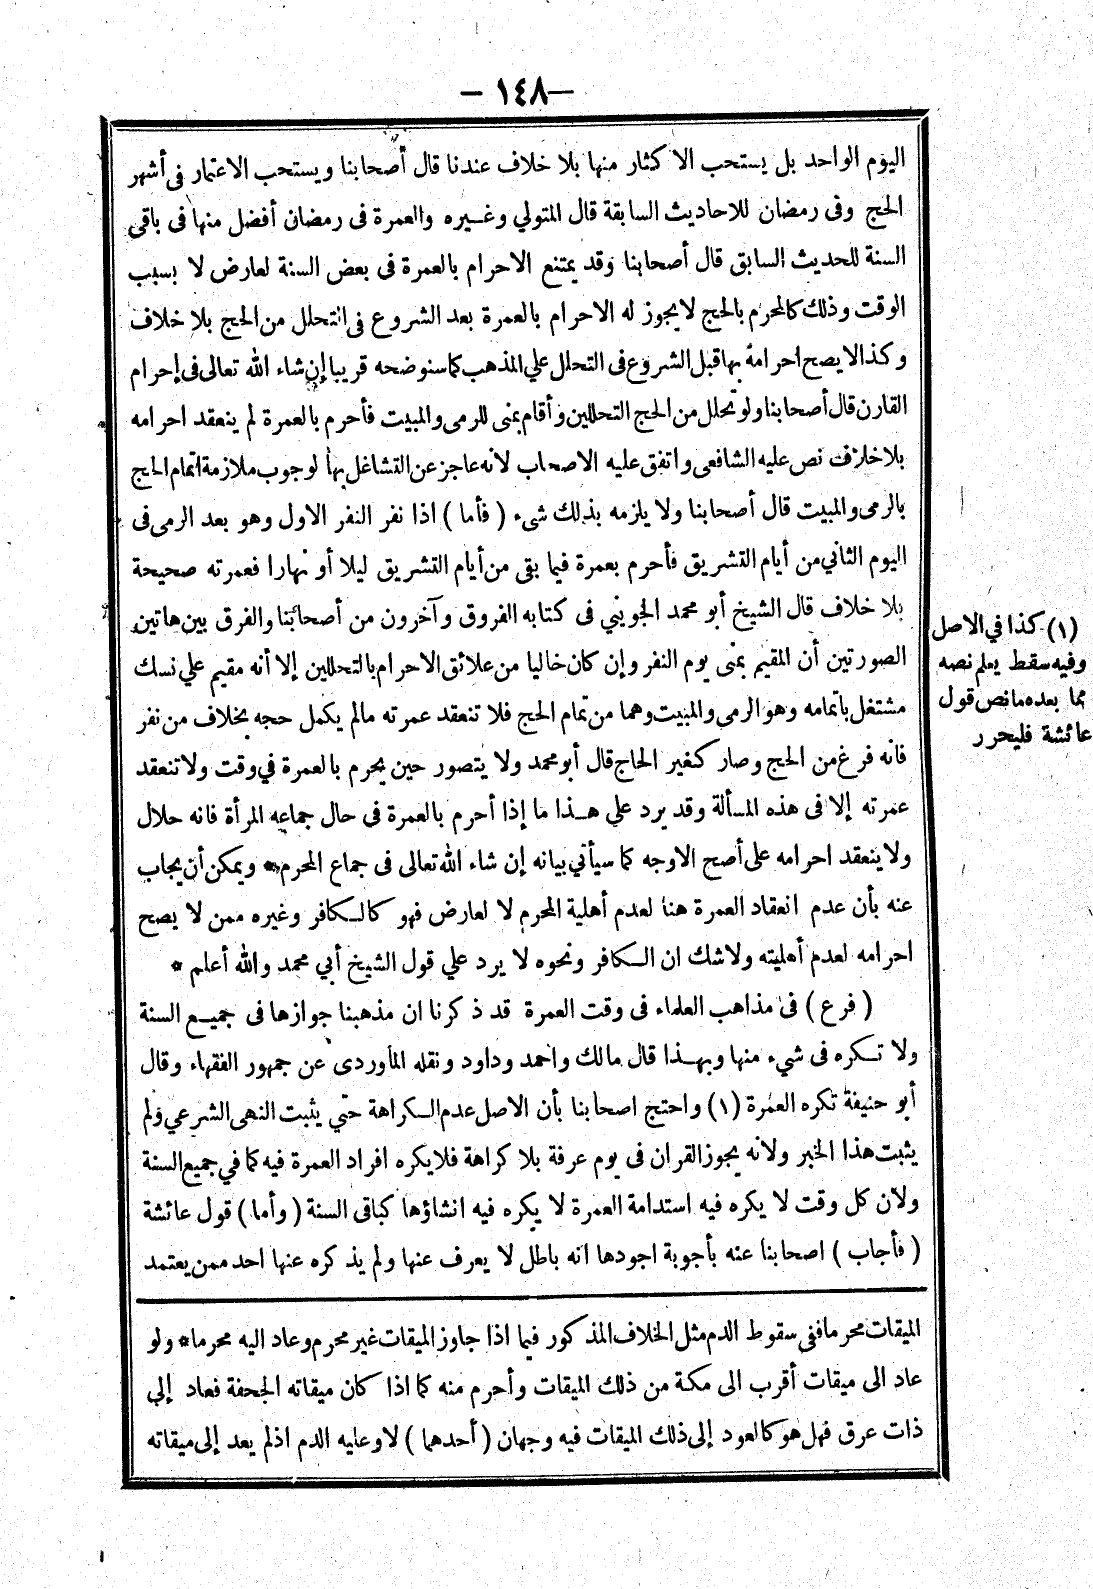 — ١٤٨ —
اليوم الواحد بل يستحب الاكثار منها بلا خلاف عندنا قال أصحابنا ويستحب الاعتمار فى أشهر
الحج وفى رمضان للاحاديث السابقة قال المتولي وغيره والعمرة فى رمضان أفضل منها فى باقى
السنة للحديث السابق قال أصحابنا وقد يمتنع الاحرام بالعمرة فى بعض السنة لعارض لا بسبب
الوقت وذلك كالمحرم بالحج لايجوز له الاحرام بالعمرة بعد الشروع فى التحلل من الحج بلا خلاف
وكذا لا يصح احرامه بها قبل الشروع فى التحلل علي المذهب كما سنوضحه قريبا إن شاء الله تعالى فى إحرام
القارن قال أصحابنا ولو تحلل من الحج التحللين وأقام بمنى للرمى والمبيت فأحرم بالعمرة لم ينعقد احرامه
بلا خلاف نص عليه الشافعى واتفق عليه الاصحاب لأنه عاجز عن التشاغل بها لوجوب ملازمة اتمام الحج
بالرمى والمبيت قال أصحابنا ولا يلزمه بذلك شىء ( فأما ) اذا نفر النفر الاول وهو بعد الرمى فى
اليوم الثاني من أيام التشريق فأحرم بعمرة فيما بقى من أيام التشريق ليلا أو نهارا فعمرته صحيحة
بلا خلاف قال الشيخ أبو محمد الجويني فى كتابه الفروق وآخرون من أصحابنا والفرق بين هاتين
الصورتين أن المقيم بمنى يوم النفر وإن كان خاليا من علائق الاحرام بالتحللين إلا أنه مقيم علي نسك
مشتغل باتمامه وهو الرمى والمبيت وهما من تمام الحج فلا تنعقد عمرته مالم يكمل حجه بخلاف من نفر
فانه فرغ من الحج وصار كغير الحاج قال أبو محمد ولا يتصور حين يحرم بالعمرة في وقت ولا تنعقد
عمرته إلا فى هذه المسألة وقد يرد علي هذا ما إذا أحرم بالعمرة فى حال جماعه المرأة فانه حلال
ولا ينعقد احرامه على أصح الاوجه كما سيأتي بيانه إن شاء الله تعالى فى جماع المحرم* ويمكن أن يجاب
عنه بأن عدم انعقاد العمرة هنا لعدم أهلية المحرم لا لعارض فهو كالكافر وغيره ممن لا يصح
احرامه لعدم أهليته ولاشك ان الكافر ونحوه لا يرد علي قول الشيخ أبي محمد والله أعلم *
( فرع ) فى مذاهب العلماء فى وقت العمرة قد ذكرنا ان مذهبنا جوازها فى جميع السنة
ولا تكره فى شيء منها وبهذا قال مالك واحمد وداود ونقله الماوردى عن جمهور الفقهاء وقال
أبو حنيفة تكره العمرة (١) واحتج اصحابنا بأن الاصل عدم الكراهة حتي يثبت النهى الشرعي ولم
يثبت هذا الخبر ولانه يجوز القران فى يوم عرفة بلا كراهة فلا يكره افراد العمرة فيه كما في جميع السنة
ولان كل وقت لا يكره فيه استدامة العمرة لا يكره فيه انشاؤها كباقى السنة ( وأما ) قول عائشة
( فأجاب ) اصحابنا عنه بأجوبة اجودها انه باطل لا يعرف عنها ولم يذكره عنها احد ممن يعتمد
(١) كذا في الاصل
وفيه سقط يعلم نصه
مما بعده ما نص قول
عائشة فليحرر
الميقات محرما ففى سقوط الدم مثل الخلاف المذكور فيما اذا جاوز الميقات غير محرم وعاد اليه محرما* ولو
عاد الى ميقات أقرب الى مكة من ذلك الميقات وأحرم منه كما اذا كان ميقاته الجحفة فعاد إلى
ذات عرق فهل هو كالعود إلى ذلك الميقات فيه وجهان ( أحدهما ) لا وعليه الدم اذ لم يعد إلى ميقاته